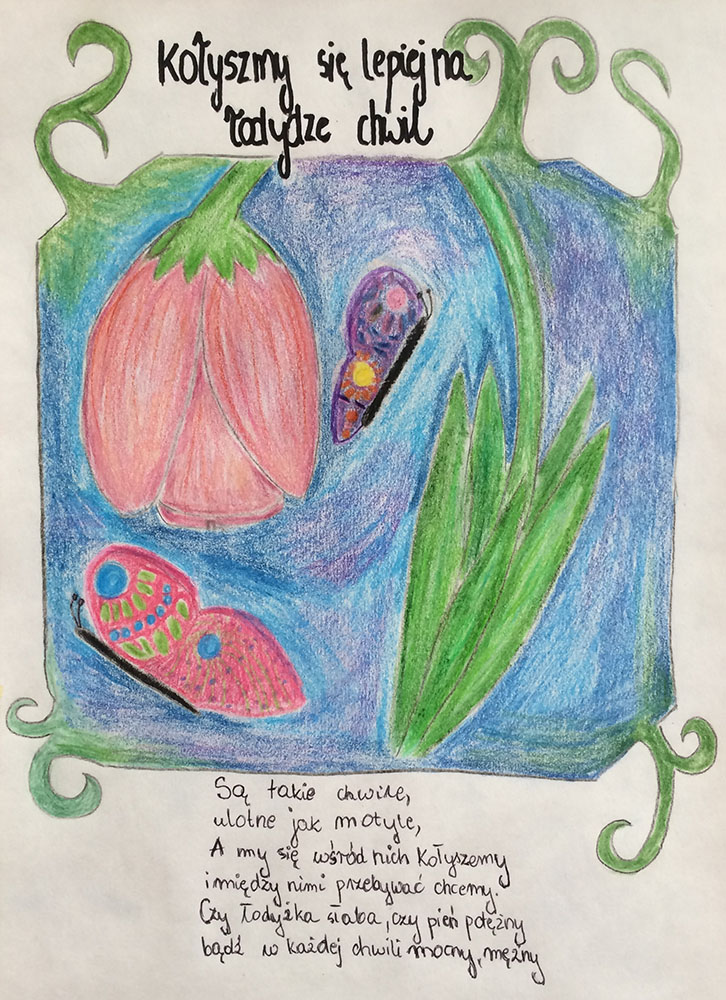 Kołyszmy się lepiej na
łodydze chwil
Są takie chwile,
ulotne jak motyle,
A my się wśród nich kołyszemy
i między nimi przebywać chcemy.
Czy łodyżka słaba, czy pień potężny
bądź w każdej chwili mocny, mężny